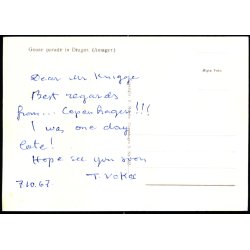 Goose parade in Dragør (Amager)
Dear Mr Knigge
Best regards
from... Copenhagen!!!
I was one day
late!
Hope see you soon
7.10.67. T.